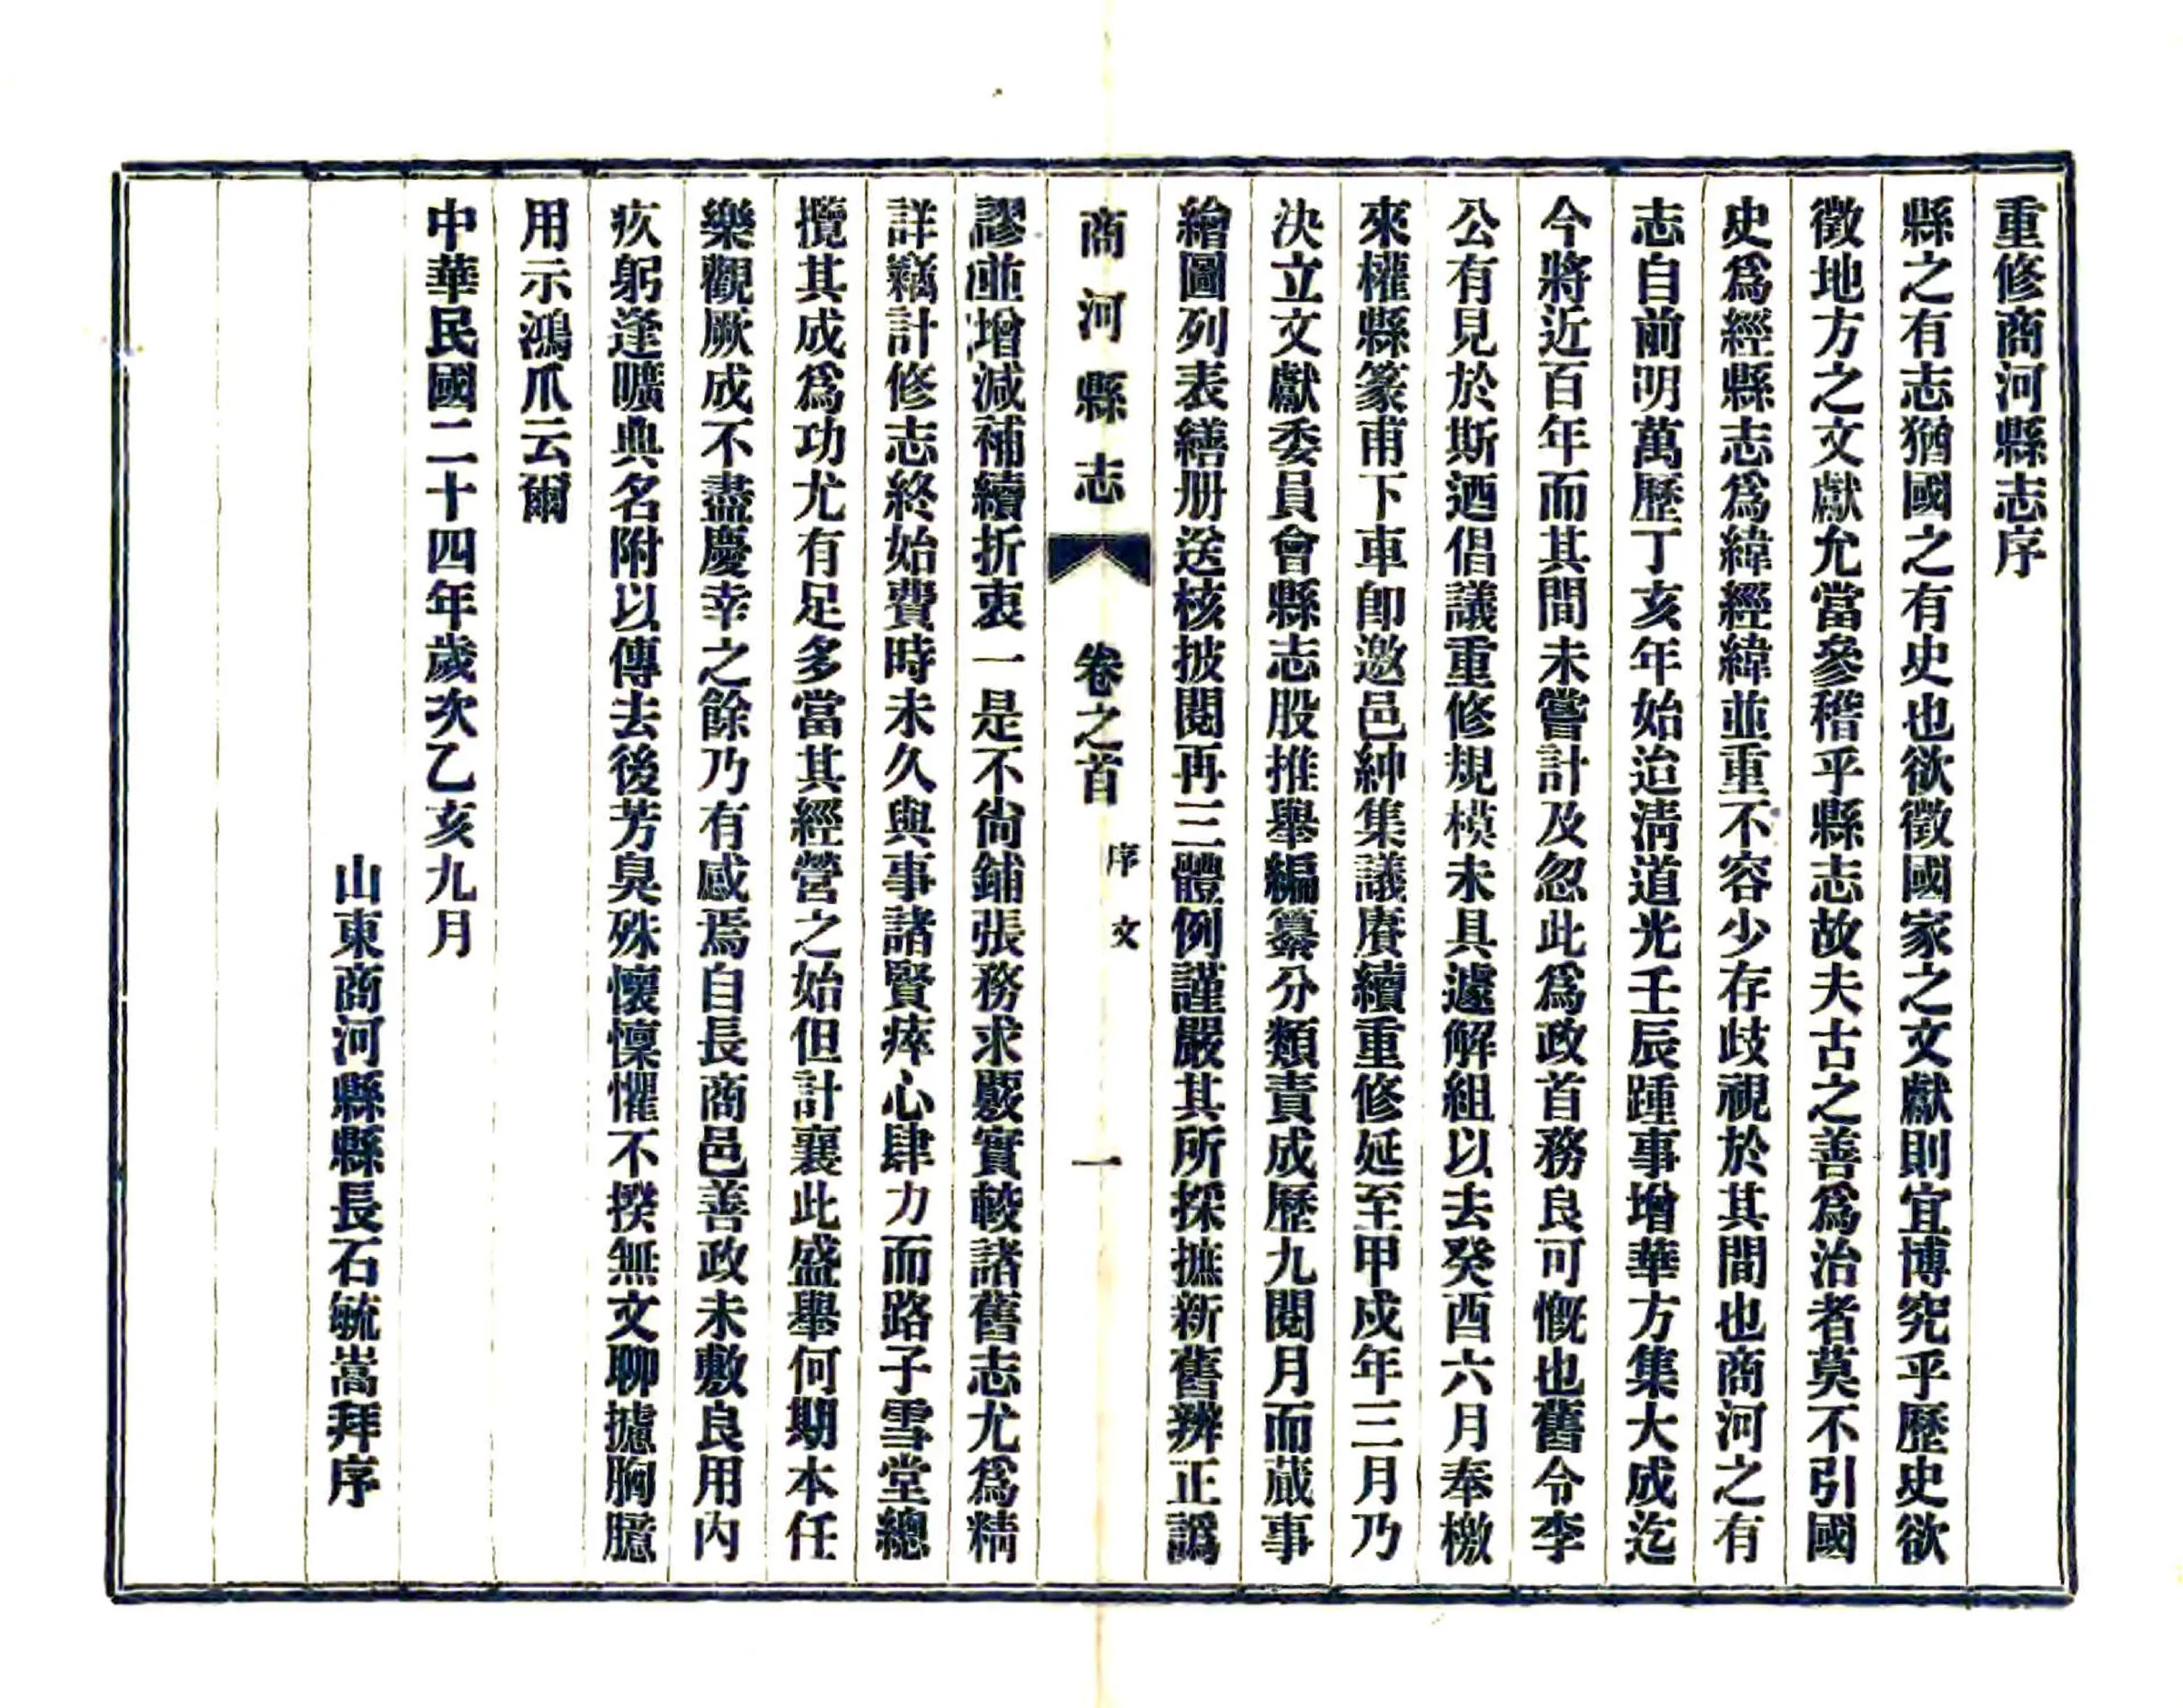 重修商河縣志序
縣之有志猶國之有史也欲徵國家之文獻則宜博究乎歷史欲
徵地方之文獻允當參稽乎縣志故夫古之善爲治者莫不引國
史爲經縣志爲緯經緯並重不容少存歧視於其間也商河之有
志自前明萬歷丁亥年始迨淸道光壬辰踵事增華方集大成迄
今將近百年而其間未嘗計及忽此爲政首務良可慨也舊令李
公有見於斯迺倡議重修規模未具遽解組以去癸酉六月奉檄
來權縣篆甫下車卽邀邑紳集議賡續重修延至甲戍年三月乃
決立文獻委員會縣志股推舉編纂分類責成歷九閱月而蕆事
繪圖列表繕册送核披閱再三體例謹嚴其所採摭新舊辨正譌
謬並增减補續折衷一是不尙鋪張務求覈實較諸舊志尤爲精
詳竊計修志終始費時未久與事諸賢瘁心肆力而路子雪堂總
攬其成爲功尤有足多當其經營之始但計襄此盛舉何期本任
樂觀厥成不盡慶幸之餘乃有感焉自長商邑善政未敷良用內
疚躬逢曠典名附以傳去後芳臭殊懷懍懼不揆無文聊攄胸臆
用示鴻爪云爾
中華民國二十四年歲次乙亥九月
山東商河縣縣長石毓嵩拜序
商河縣志
卷之首
序文
一